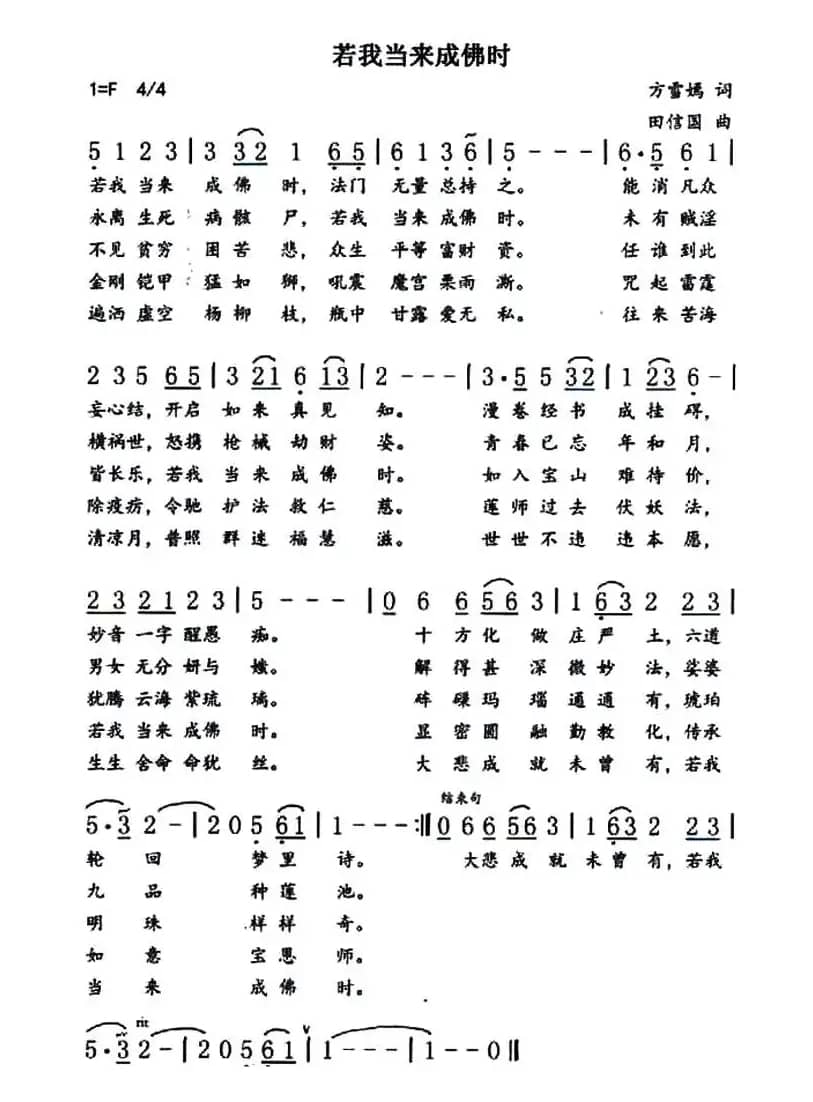 若我当来成佛时
1=F 4/4
方雪嫣 词
田信国 曲
5 1 2 3 | 3 32 1 65 | 6 1 3 6 | 5 - - - | 6· 5 6 1 |
若我 当来 成 佛 时, 法门 无量 总持 之。 能 消 凡众
永离 生死 病 骸 尸, 若我 当来 成佛 时。 未 有 贼淫
不见 贫穷 困 苦 悲, 众生 平等 富财 资。 任 谁 到此
金刚 铠甲 猛 如 狮, 吼震 魔宫 栗雨 澌。 咒 起 雷霆
遍洒 虚空 杨 柳 枝, 瓶中 甘露 爱无 私。 往 来 苦海
2 3 5 65 | 3 21 6 13 | 2 - - - | 3· 5 5 32 | 1 23 6 - |
妄心结, 开启 如 来 真 见 知。 漫 卷 经 书 成 挂 碍,
横祸世, 怒携 枪 械 劫 财 姿。 青 春 已 忘 年 和 月,
皆长乐, 若我 当 来 成 佛 时。 如 入 宝 山 难 待 价,
除疫疠, 令驰 护 法 救 仁 慈。 莲 师 过 去 伏 妖 法,
清凉月, 普照 群 迷 福 慧 滋。 世 世 不 违 违 本 愿,
23 21 2 3 | 5 - - - | 0 6 6 56 3 | 1 63 2 23 |
妙音 一字 醒愚 痴。 十 方 化 做 庄 严 土, 六道
男女 无分 妍与 媸。 解 得 甚 深 微 妙 法, 娑婆
犹腾 云海 紫琉 璃。 砗 磲 玛 瑙 通 通 有, 琥珀
若我 当来 成佛 时。 显 密 圆 融 勤 教 化, 传承
生生 舍命 命犹 丝。 大 悲 成 就 未 曾 有, 若我
结束句
5· 3 2 - | 2 0 5 61 | 1 - - - :|| 0 6 6 56 3 | 1 63 2 23 |
轮 回 梦 里 诗。 大 悲 成 就 未 曾 有, 若我
九 品 种 莲 池。
明 珠 样 样 奇。
如 意 宝 恩 师。
当 来 成 佛 时。
rit
5· 3 2 - | 2 0 5 61 | 1 - - - | 1 - - 0 ||